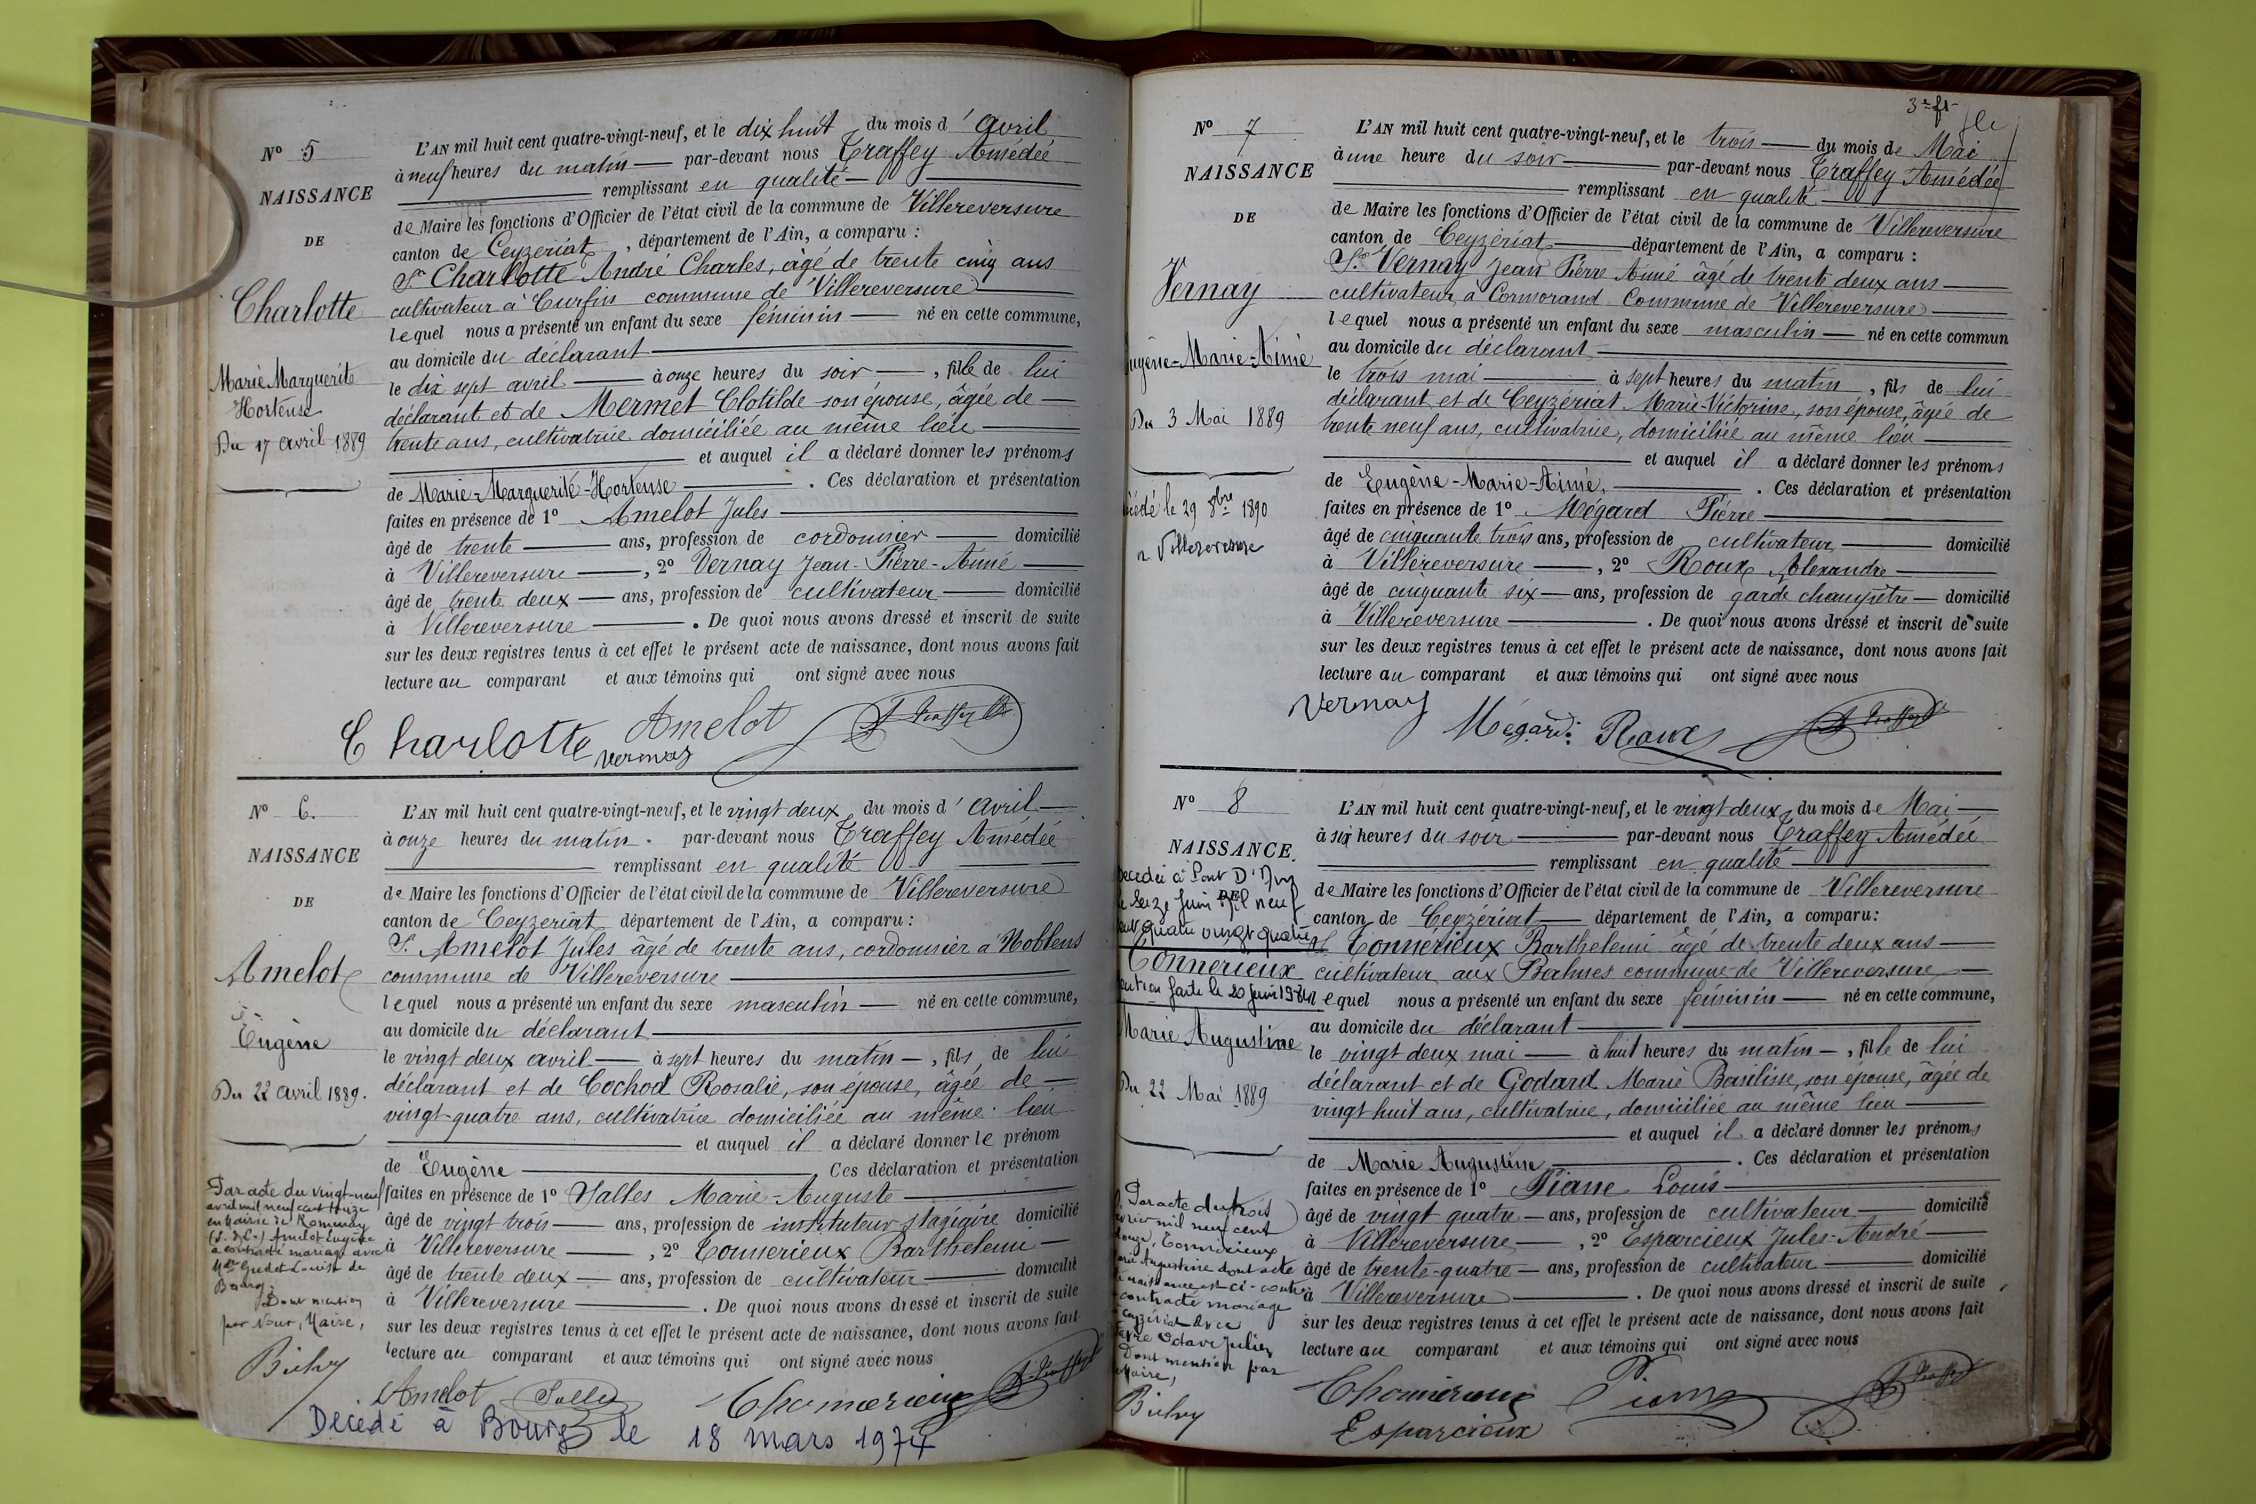 N° 5
NAISSANCE
DE
Charlotte
Marie Marguerite
Hortense
Du 17 avril 1889
L'AN mil huit cent quatre-vingt-neuf, et le dix huit du mois d'avril
à neuf heures du matin par-devant nous Traffey Amédée
remplissant en qualité
de Maire les fonctions d'Officier de l'état civil de la commune de Villereversure
canton de Ceyzériat, département de l'Ain, a comparu :
Sr Charlotte André Charles, âgé de trente cinq ans
cultivateur à Curfin commune de Villereversure
lequel nous a présenté un enfant du sexe féminin né en cette commune,
au domicile du déclarant
le dix sept avril à onze heures du soir, fille de lui
déclarant et de Mermet Clotilde son épouse, âgée de
trente ans, cultivatrice domiciliée au même lieu
et auquel il a déclaré donner les prénoms
de Marie-Marguerite-Hortense. Ces déclaration et présentation
faites en présence de 1° Amelot Jules
âgé de trente ans, profession de cordonnier domicilié
à Villereversure, 2° Vernay Jean-Pierre-Aimé
âgé de trente deux ans, profession de cultivateur domicilié
à Villereversure. De quoi nous avons dressé et inscrit de suite
sur les deux registres tenus à cet effet le présent acte de naissance, dont nous avons fait
lecture au comparant et aux témoins qui ont signé avec nous
Charlotte Amelot Vernay A Traffey
N° 6.
NAISSANCE
DE
Amelot
Eugène
Du 22 avril 1889.
L'AN mil huit cent quatre-vingt-neuf, et le vingt deux du mois d'avril
à onze heures du matin. par-devant nous Traffey Amédée
remplissant en qualité
de Maire les fonctions d'Officier de l'état civil de la commune de Villereversure
canton de Ceyzériat département de l'Ain, a comparu :
S. Amelot Jules âgé de trente ans, cordonnier à Noblens
commune de Villereversure
lequel nous a présenté un enfant du sexe masculin né en cette commune,
au domicile du déclarant
le vingt deux avril à sept heures du matin, fils de lui
déclarant et de Cochod Rosalie, son épouse, âgée de
vingt-quatre ans, cultivatrice domiciliée au même lieu
et auquel il a déclaré donner le prénom
de Eugène. Ces déclaration et présentation
faites en présence de 1° Salles Marie-Auguste
âgé de vingt trois ans, profession de instituteur stagiaire domicilié
à Villereversure, 2° Tonnerieux Barthelemi
âgé de trente deux ans, profession de cultivateur domicilié
à Villereversure. De quoi nous avons dressé et inscrit de suite
sur les deux registres tenus à cet effet le présent acte de naissance, dont nous avons fait
lecture au comparant et aux témoins qui ont signé avec nous
Par acte du vingt-neuf
avril mil neuf cent treize
en Mairie de Romenay
(S. & L.) Amelot Eugène
a contracté mariage avec
Melle Gredet Louise de
Bourg.
Dont mention
par Nous, Maire,
Bichy
Amelot Salles Thomerieux A Traffey
Décédé à Bourg le 18 mars 1974
3e ft
N° 7
NAISSANCE
DE
Vernay
Eugène-Marie-Aimé
Du 3 Mai 1889
décédé le 29 8bre 1890
à Villereversure
L'AN mil huit cent quatre-vingt-neuf, et le trois du mois de Mai
à une heure du soir par-devant nous Traffey Amédée
remplissant en qualité
de Maire les fonctions d'Officier de l'état civil de la commune de Villereversure
canton de Ceyzériat département de l'Ain, a comparu :
Sr Vernay Jean Pierre Aimé âgé de trente deux ans
cultivateur à Cormorand Commune de Villereversure
lequel nous a présenté un enfant du sexe masculin né en cette commun
au domicile du déclarant
le trois mai à sept heures du matin, fils de lui
déclarant et de Ceyzériat Marie-Victorine, son épouse, âgée de
trente neuf ans, cultivatrice, domiciliée au même lieu
et auquel il a déclaré donner les prénoms
de Eugène-Marie-Aimé. Ces déclaration et présentation
faites en présence de 1° Mégard Pierre
âgé de cinquante trois ans, profession de cultivateur domicilié
à Villereversure, 2° Roux Alexandre
âgé de cinquante six ans, profession de garde champêtre domicilié
à Villereversure. De quoi nous avons dressé et inscrit de suite
sur les deux registres tenus à cet effet le présent acte de naissance, dont nous avons fait
lecture au comparant et aux témoins qui ont signé avec nous
Vernay Mégard Roux A Traffey
N° 8
NAISSANCE
DE
Décédée à Pont D'Ain
le Seize Juin Mil neuf
cent quatre vingt quatre
Tonnerieux
mention faite le 20 Juin 1984
Marie Augustine
Du 22 Mai 1889
L'AN mil huit cent quatre-vingt-neuf, et le vingt deux du mois de Mai
à six heures du soir par-devant nous Traffey Amédée
remplissant en qualité
de Maire les fonctions d'Officier de l'état civil de la commune de Villereversure
canton de Ceyzériat département de l'Ain, a comparu:
S. Tonnerieux Barthelemi âgé de trente deux ans
cultivateur aux Balmes commune de Villereversure
lequel nous a présenté un enfant du sexe féminin né en cette commune,
au domicile du déclarant
le vingt deux mai à huit heures du matin, fille de lui
déclarant et de Godard Marie Basilisse, son épouse, âgée de
vingt huit ans, cultivatrice, domiciliée au même lieu
et auquel il a déclaré donner les prénoms
de Marie Augustine. Ces déclaration et présentation
faites en présence de 1° Piane Louis
âgé de vingt quatre ans, profession de cultivateur domicilié
à Villereversure, 2° Esparcieux Jules-André
âgé de trente-quatre ans, profession de cultivateur domicilié
à Villereversure. De quoi nous avons dressé et inscrit de suite
sur les deux registres tenus à cet effet le présent acte de naissance, dont nous avons fait
lecture au comparant et aux témoins qui ont signé avec nous
Par acte du trois
février mil neuf cent
douze, Tonnerieux
Marie Augustine dont acte
de naissance est ci-contre
a contracté mariage
à Ceyzériat avec
Octave Julien
Dont mention par
Maire,
Bichy
Thomerieux Piane A Traffey
Esparcieux